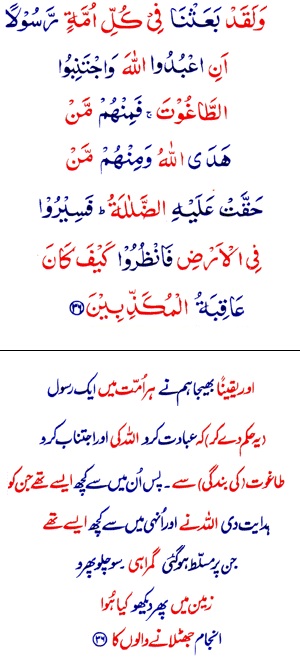 وَلَقَدْ بَعَثْنَا فِيْ كُلِّ اُمَّةٍ رَّسُوْلًا
اَنِ اعْبُدُوا اللّٰهَ وَاجْتَنِبُوا
الطَّاغُوْتَ ۚ فَمِنْهُمْ مَّنْ
هَدَى اللّٰهُ وَمِنْهُمْ مَّنْ
حَقَّتْ عَلَيْهِ الضَّلٰلَةُ ؕ فَسِيْرُوْا
فِي الْاَرْضِ فَانْظُرُوْا كَيْفَ كَانَ
عَاقِبَةُ الْمُكَذِّبِيْنَ ﴿۳۶﴾
اور یقینًا بھیجا ہم نے ہر اُمّت میں ایک رسول
(یہ حکم دے کر) کہ عبادت کرو اللہ کی اور اجتناب کرو
طاغوت (کی بندگی) سے ۔ پس اُن میں سے کچھ ایسے تھے جن کو
ہدایت دی اللہ نے اور اُنہی میں سے کچھ ایسے تھے
جن پر مسلّط ہوگئی گمراہی سو چلو پھرو
زمین میں پھر دیکھو کیا ہُوا
انجام جھٹلانے والوں کا ﴿۳۶﴾